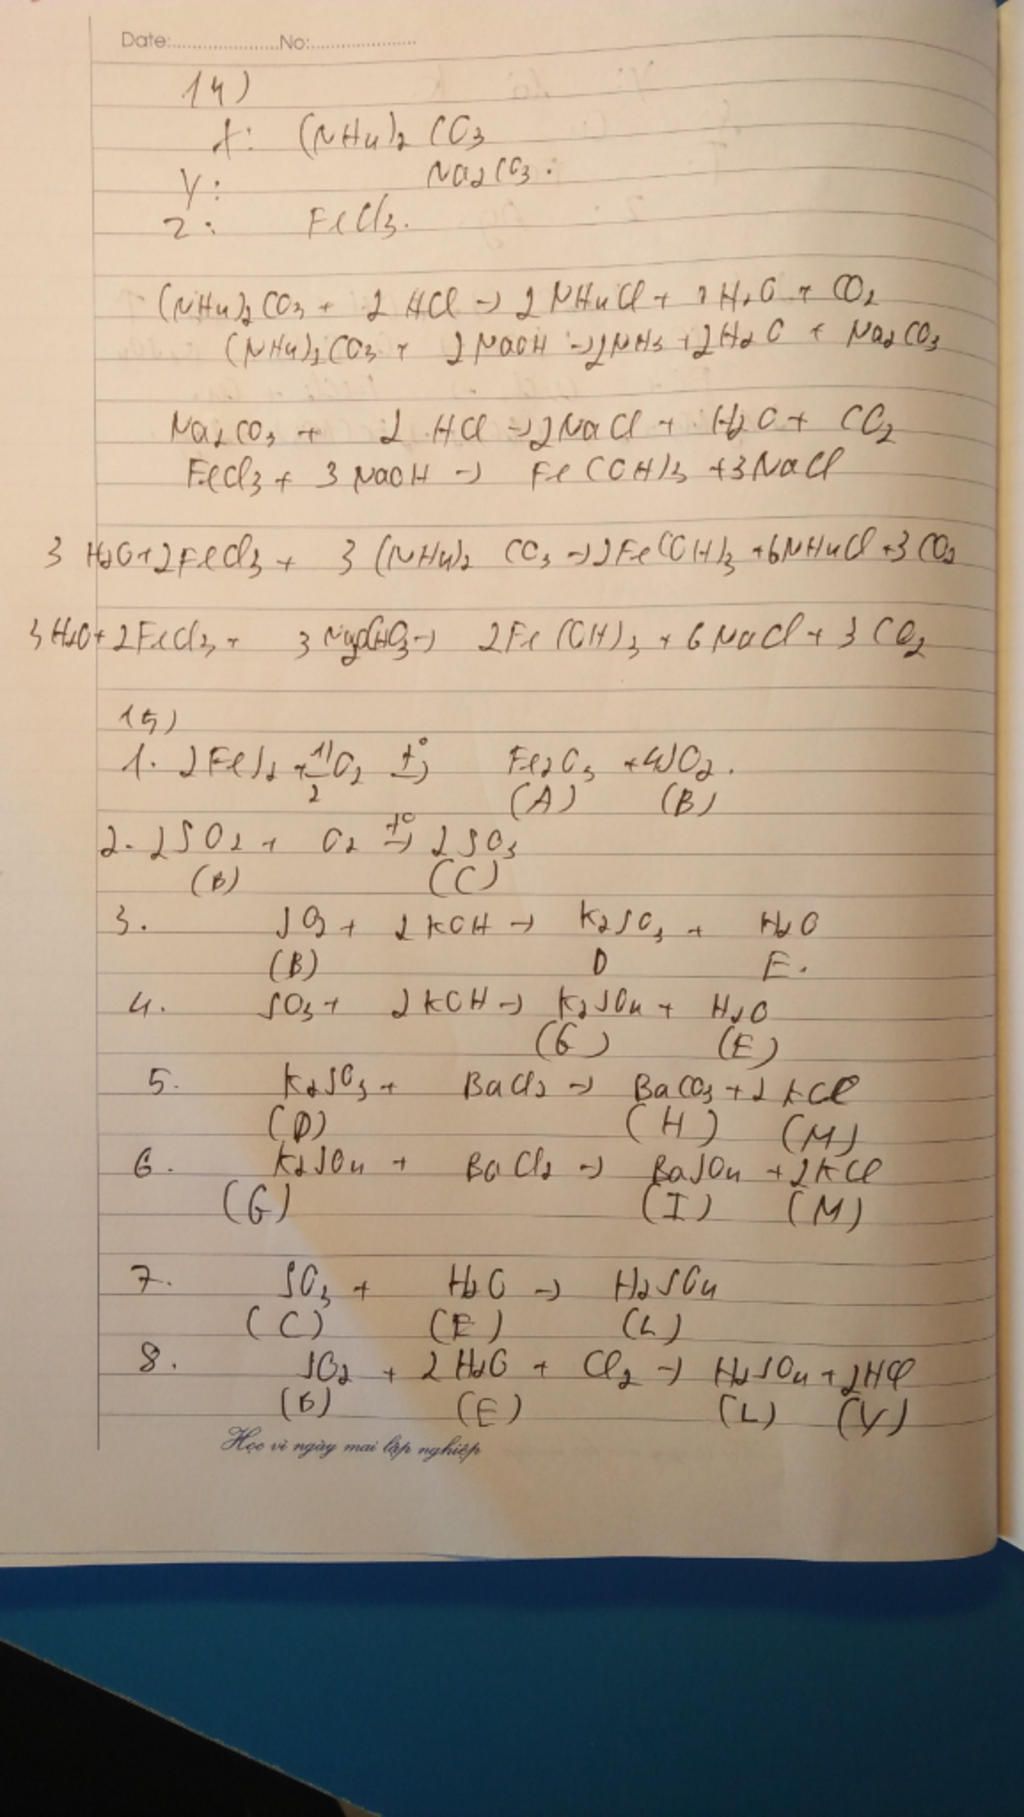 Date:.....................No:....................
14)
X: (NH4)2 CO3
Y: Na2CO3.
Z: FeCl3.
(NH4)2CO3 + 2 HCl → 2 NH4Cl + H2O + CO2
(NH4)2CO3 + 2NaOH → 2NH3 + 2H2O + Na2CO3
Na2CO3 + 2 HCl → 2NaCl + H2O + CO2
FeCl3 + 3 NaOH → Fe(OH)3 + 3NaCl
3 H2O + 2FeCl3 + 3 (NH4)2 CO3 → 2Fe(OH)3 + 6NH4Cl + 3CO2
3H2O + 2FeCl3 + 3 → 2Fe(OH)3 + 6NaCl + 3CO2
15)
1. 2FeS2 + 11/2 O2 t° → Fe2O3 + 4SO2.
(A) (B)
2. 2SO2 + O2 t° → 2SO3
(B) (C)
3. SO2 + 2KOH → K2SO3 + H2O
(B) D E.
4. SO3 + 2KOH → K2SO4 + H2O
(G) (E)
5. K2SO3 + BaCl2 → BaCO3 + 2KCl
(D) (H) (M)
6. K2SO4 + BaCl2 → BaSO4 + 2KCl
(G) (I) (M)
7. SO3 + H2O → H2SO4
(C) (E) (L)
8. SO2 + 2H2O + Cl2 → H2SO4 + 2HCl
(B) (E) (L) (V)
Học vì ngày mai lập nghiệp